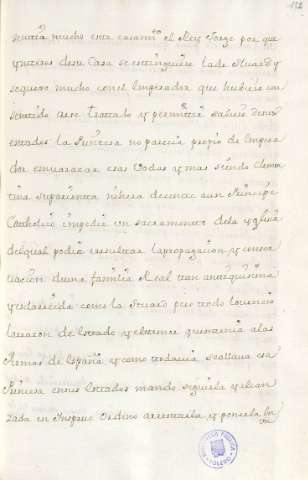 sentia mucho este casamto el Rey Jorge por que
Ynteres desu Casa se extinguiese la de Stuard y
seguro mucho con el Emperador que hubiese con
sentido a este tratado y permitiera saliese de sus
estados la Princesa no parecia propio de Empera
dor embarazar esas Vodas y mas siendo Clemen
tina su parienta ni hera decente a un Principe
Catholico impedir un sacramento de la yglesia
del qual podia resultar la propagacion y conser
vacion de una familia Real tan antiquisima
y esclarecida como la Stuard pero todo lo vencio
la razon de Estado y el temor que tenia a las
Armas de España y como todavia se allava esa
Princesa en sus Estados mando seguirla y alcan
zada en Inspruc ordeno arrestarla y ponerla en